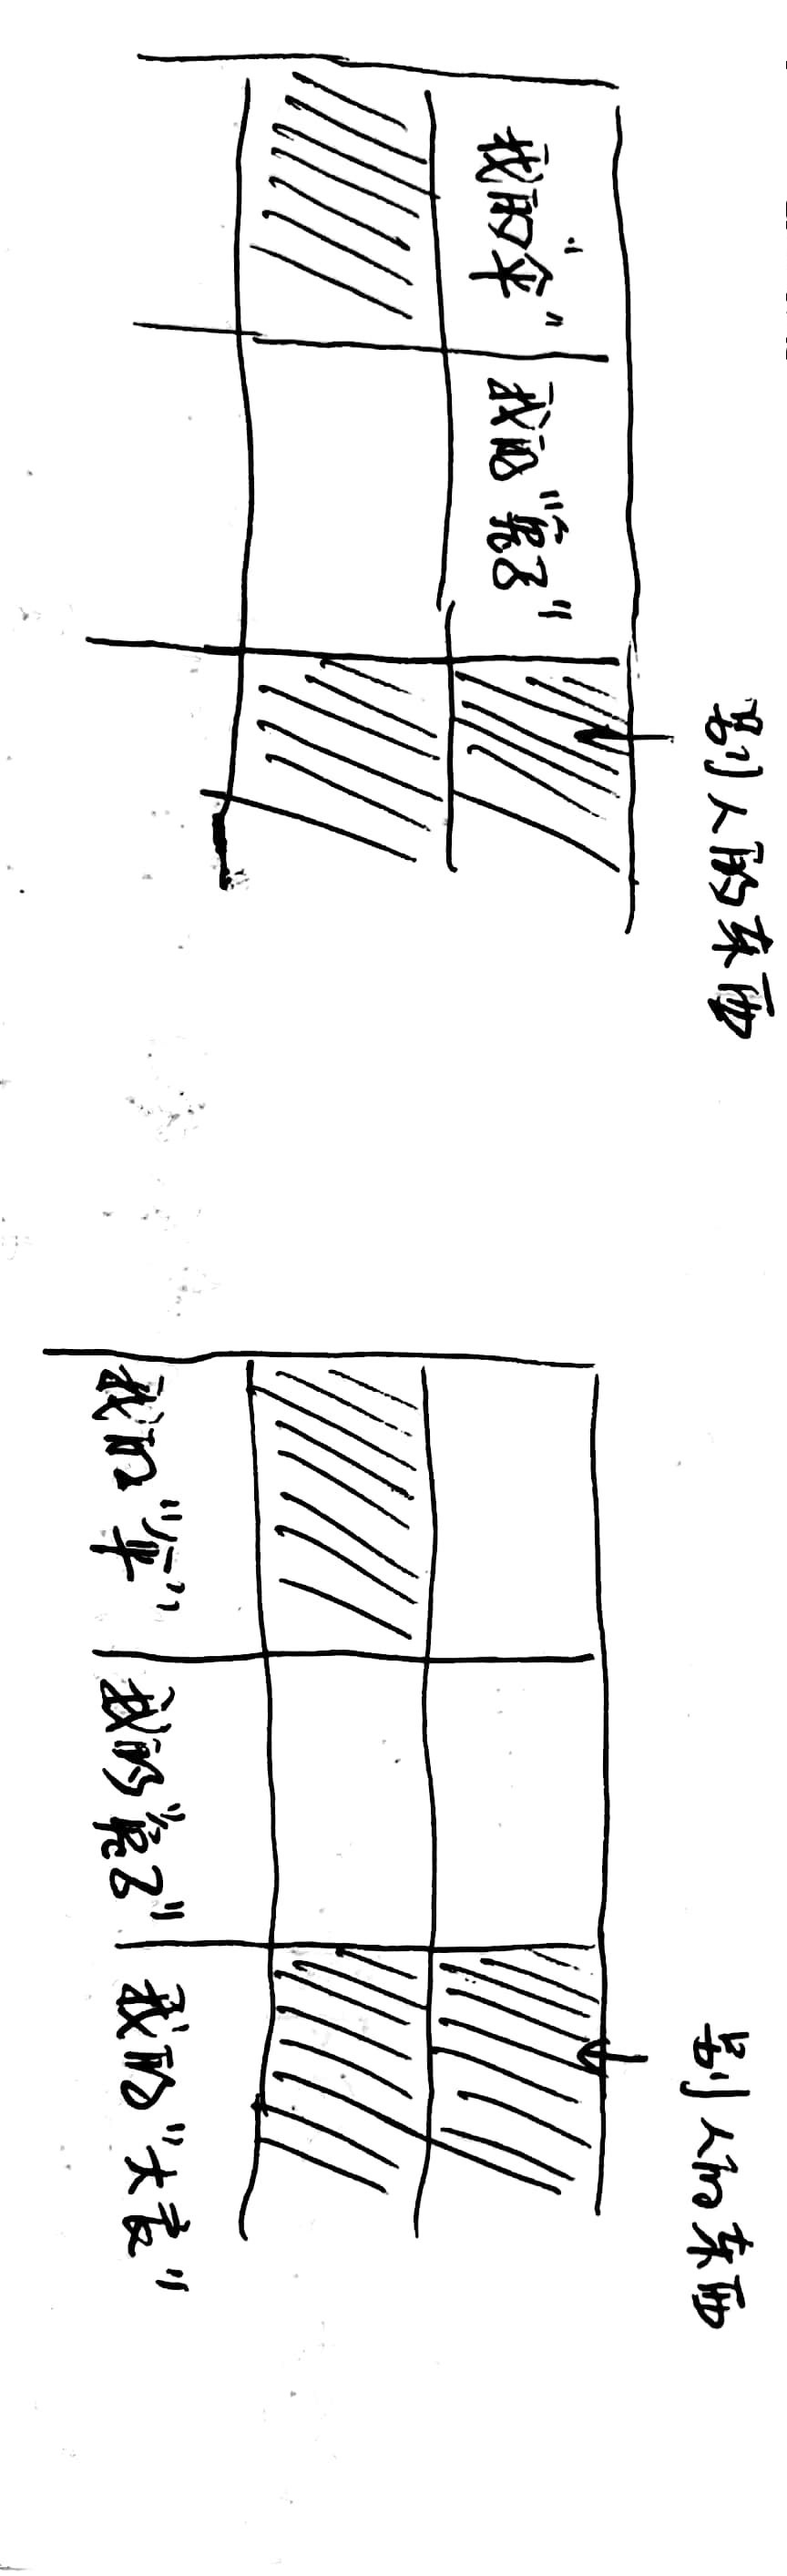 别人的东西
我的"伞"
我的"兔子"
别人的东西
我的"伞"
我的"兔子"
我的"大衣"